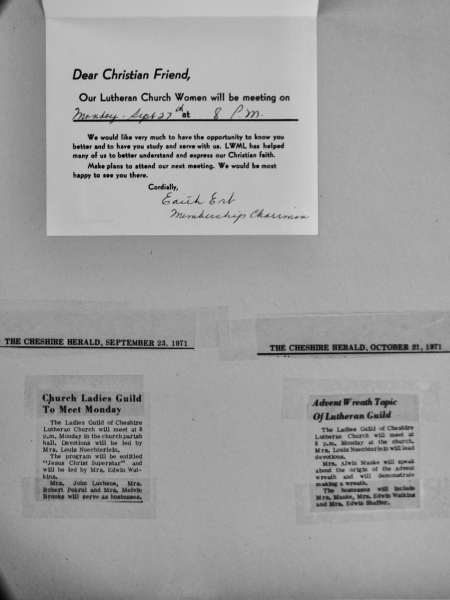 Dear Christian Friend,
Our Lutheran Church Women will be meeting on
Monday - Sept 27th at 8 P.M.
We would like very much to have the opportunity to know you
better and to have you study and serve with us. LWML has helped
many of us to better understand and express our Christian faith.
Make plans to attend our next meeting. We would be most
happy to see you there.
Cordially,
Edith Erb
Membership Chairman
THE CHESHIRE HERALD, SEPTEMBER 23, 1971
Church Ladies Guild
To Meet Monday
The Ladies Guild of Cheshire
Lutheran Church will meet at 8
p.m. Monday in the church parish
hall. Devotions will be led by
Mrs. Louis Nuechterlein.
The program will be entitled
"Jesus Christ Superstar" and
will be led by Mrs. Edwin Wat-
kins.
Mrs. John Luchene, Mrs.
Robert Pokrul and Mrs. Melvin
Brooks will serve as hostesses.
THE CHESHIRE HERALD, OCTOBER 21, 1971
Advent Wreath Topic
Of Lutheran Guild
The Ladies Guild of Cheshire
Lutheran Church will meet at
8 p.m. Monday at the church.
Mrs. Louis Nuechterlein will lead
devotions.
Mrs. Alwin Manke will speak
about the origin of the Advent
wreath and will demonstrate
making a wreath.
The hostesses will include
Mrs. Manke, Mrs. Edwin Watkins
and Mrs. Edwin Shaffer.